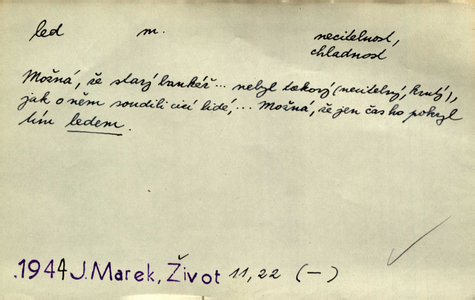 led m. necitelnost,
chladnost
Možná, že starý bankéř... nebyl takový (necitelný, krutý),
jak o něm soudili cizí lidé,... Možná, že jen čas ho pokryl
tím ledem.
.1944 J. Marek, Život 11, 22 (—)